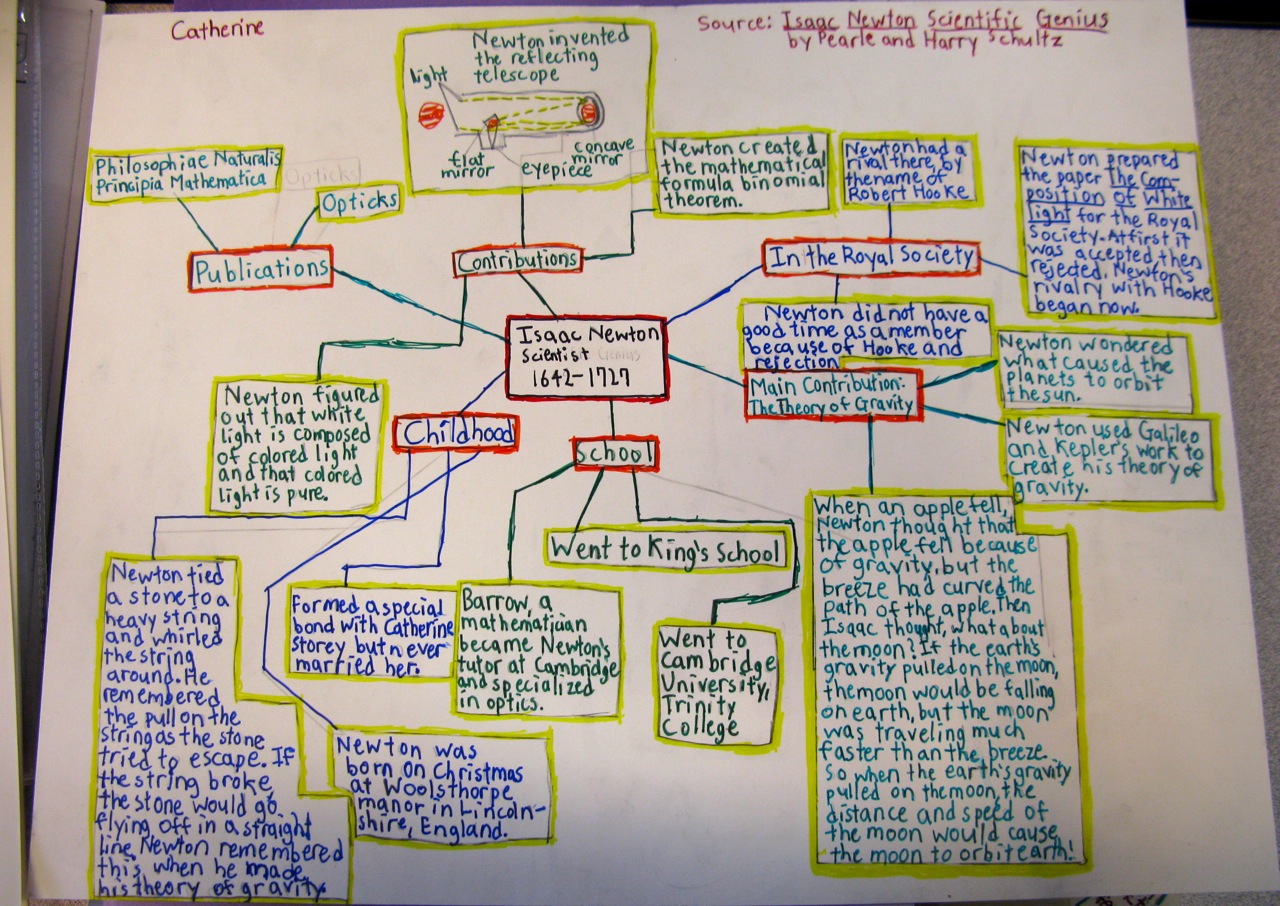 Catherine
Source: Isaac Newton Scientific Genius
by Pearle and Harry Schultz
Newton invented
the reflecting
telescope
light
flat
mirror
eyepiece
concave
mirror
Philosophiae Naturalis
Principia Mathematica
Opticks
Opticks
Publications
Contributions
Newton created
the mathematical
formula binomial
theorem.
Newton had a
rival there, by
the name of
Robert Hooke
Newton prepared
the paper The Com-
position of White
light for the Royal
Society. At first it
was accepted then
rejected. Newton's
rivalry with Hooke
began now.
In the Royal Society
Newton did not have a
good time as a member
because of Hooke and
rejection
Isaac Newton
Scientist Genius
1642-1727
Main Contribution:
The Theory of Gravity
Newton wondered
what caused the
planets to orbit
the sun.
Newton used Galileo
and Kepler's work to
create his theory of
gravity.
Newton figured
out that white
light is composed
of colored light
and that colored
light is pure.
Childhood
School
Went to King's School
When an apple fell,
Newton thought that
the apple fell because
of gravity, but the
breeze had curved the
path of the apple. Then
Isaac thought, what about
the moon? If the earth's
gravity pulled on the moon,
the moon would be falling
on earth, but the moon
was traveling much
faster than the breeze.
So when the earth's gravity
pulled on the moon, the
distance and speed of
the moon would cause
the moon to orbit earth!
Newton tied
a stone to a
heavy string
and whirled
the string
around. He
remembered
the pull on the
string as the stone
tried to escape. If
the string broke,
the stone would go
flying off in a straight
line. Newton remembered
this when he made
his theory of gravity.
Formed a special
bond with Catherine
Storey but never
married her.
Barrow, a
mathematician
became Newton's
tutor at Cambridge
and specialized
in optics.
Went to
Cambridge
University,
Trinity
College
Newton was
born on Christmas
at Woolsthorpe
manor in Lincoln-
shire, England.